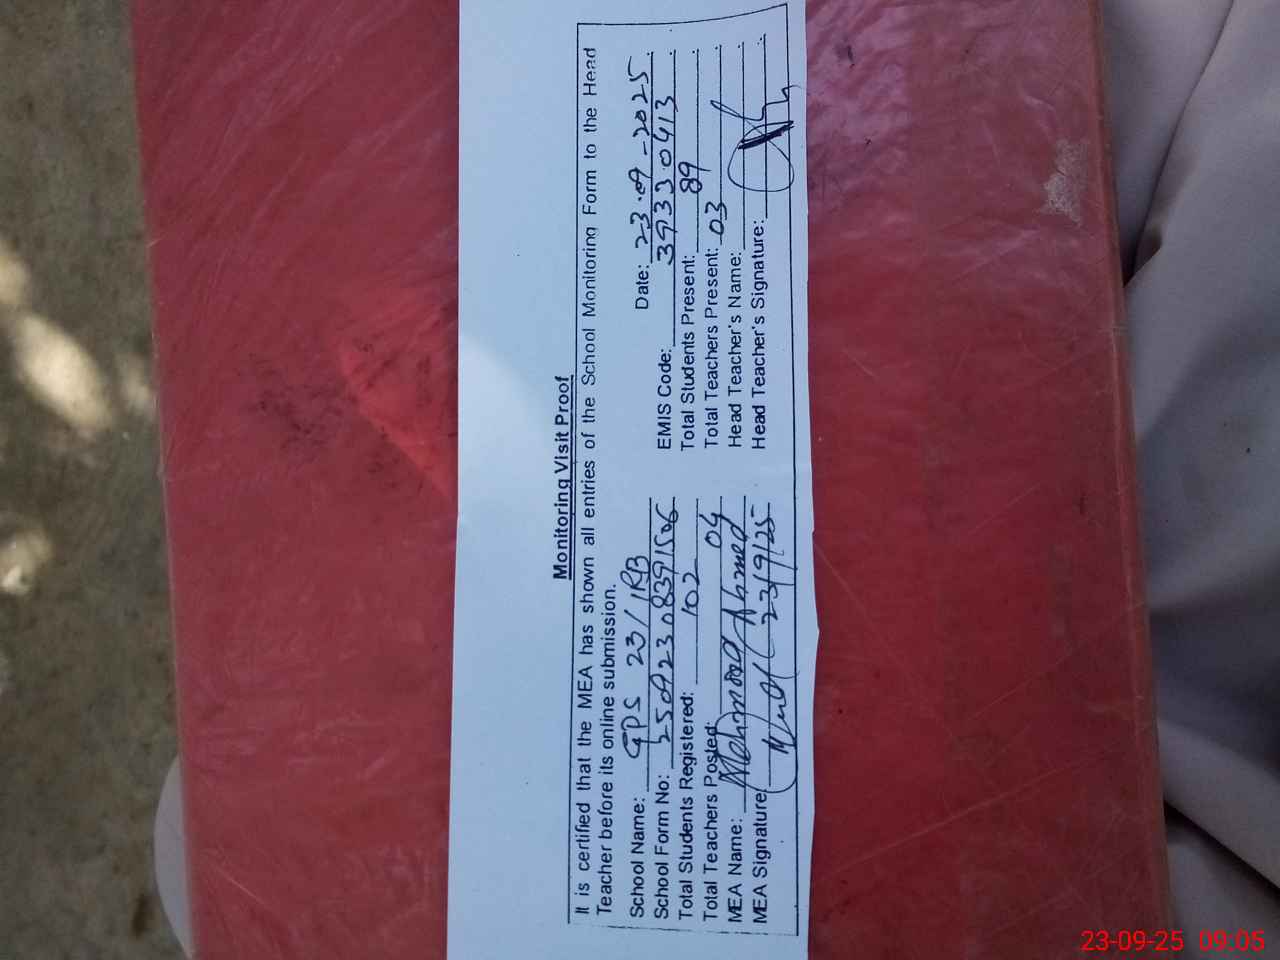 Monitoring Visit Proof
It is certified that the MEA has shown all entries of the School Monitoring Form to the Head
Teacher before its online submission.
School Name: GPS 23/1RB Date: 23-09-2025
School Form No: 25092308391506 EMIS Code: 39330413
Total Students Registered: 102 Total Students Present: 89
Total Teachers Posted: 04 Total Teachers Present: 03
MEA Name: Mehmood Ahmed Head Teacher's Name:
MEA Signature: 23/9/25 Head Teacher's Signature:
23-09-25 09:05